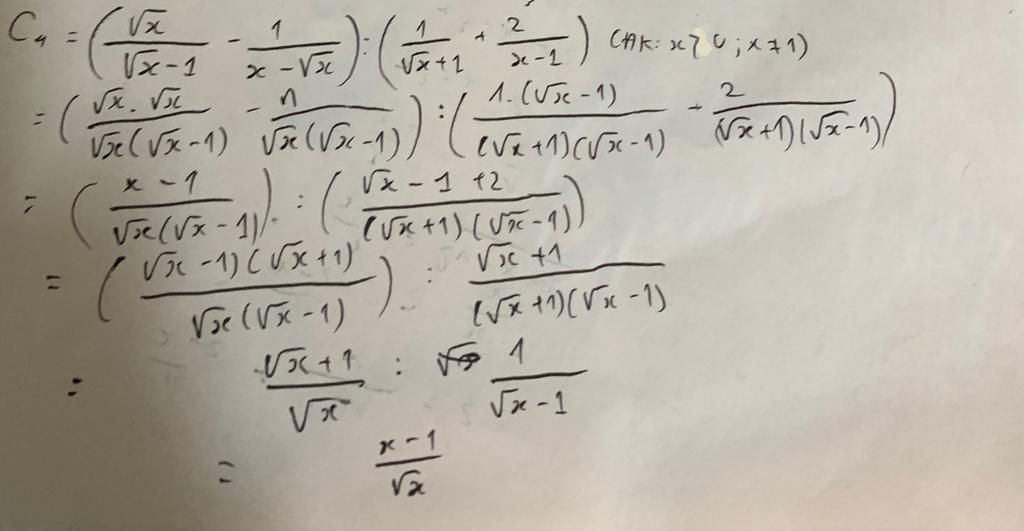 C₄ = (√x/(√x-1) - 1/(x-√x)) : (1/(√x+1) + 2/(x-1)) (ĐK: x > 0; x ≠ 1)
= (√x.√x/(√x(√x-1)) - 1/(√x(√x-1))) : (1.(√x-1)/((√x+1)(√x-1)) + 2/((√x+1)(√x-1)))
= ((x-1)/(√x(√x-1))) : ((√x-1+2)/((√x+1)(√x-1)))
= (√x-1)(√x+1)/(√x(√x-1)) : (√x+1)/((√x+1)(√x-1))
= (√x+1)/√x : 1/(√x-1)
= (x-1)/√x